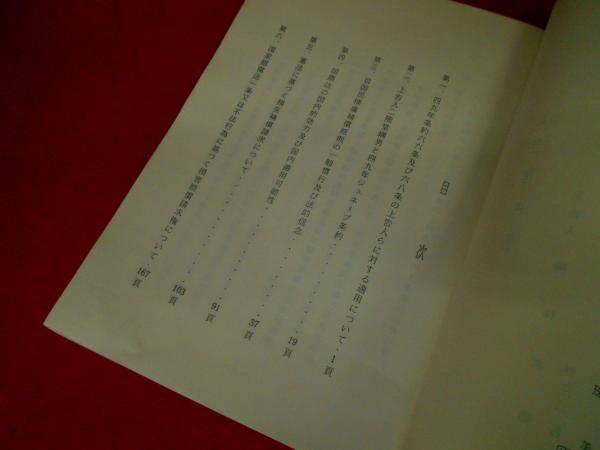 目次
第一、四九年条約六六条及び六八条の上告人らに対する適用について・1頁
第二、上告人二階堂綱男と四九年ジュネーブ条約・・・・・・・・19頁
第三、自国民捕虜補償原則の一般慣行及び法的信念・・・・・・・37頁
第四、国際法の国内的効力及び国内適用可能性・・・・・・・・・91頁
第五、憲法に基づく損失補償請求について・・・・・・・・・・・103頁
第六、国家賠償法一条又は不法行為に基づく損害賠償請求権について・167頁